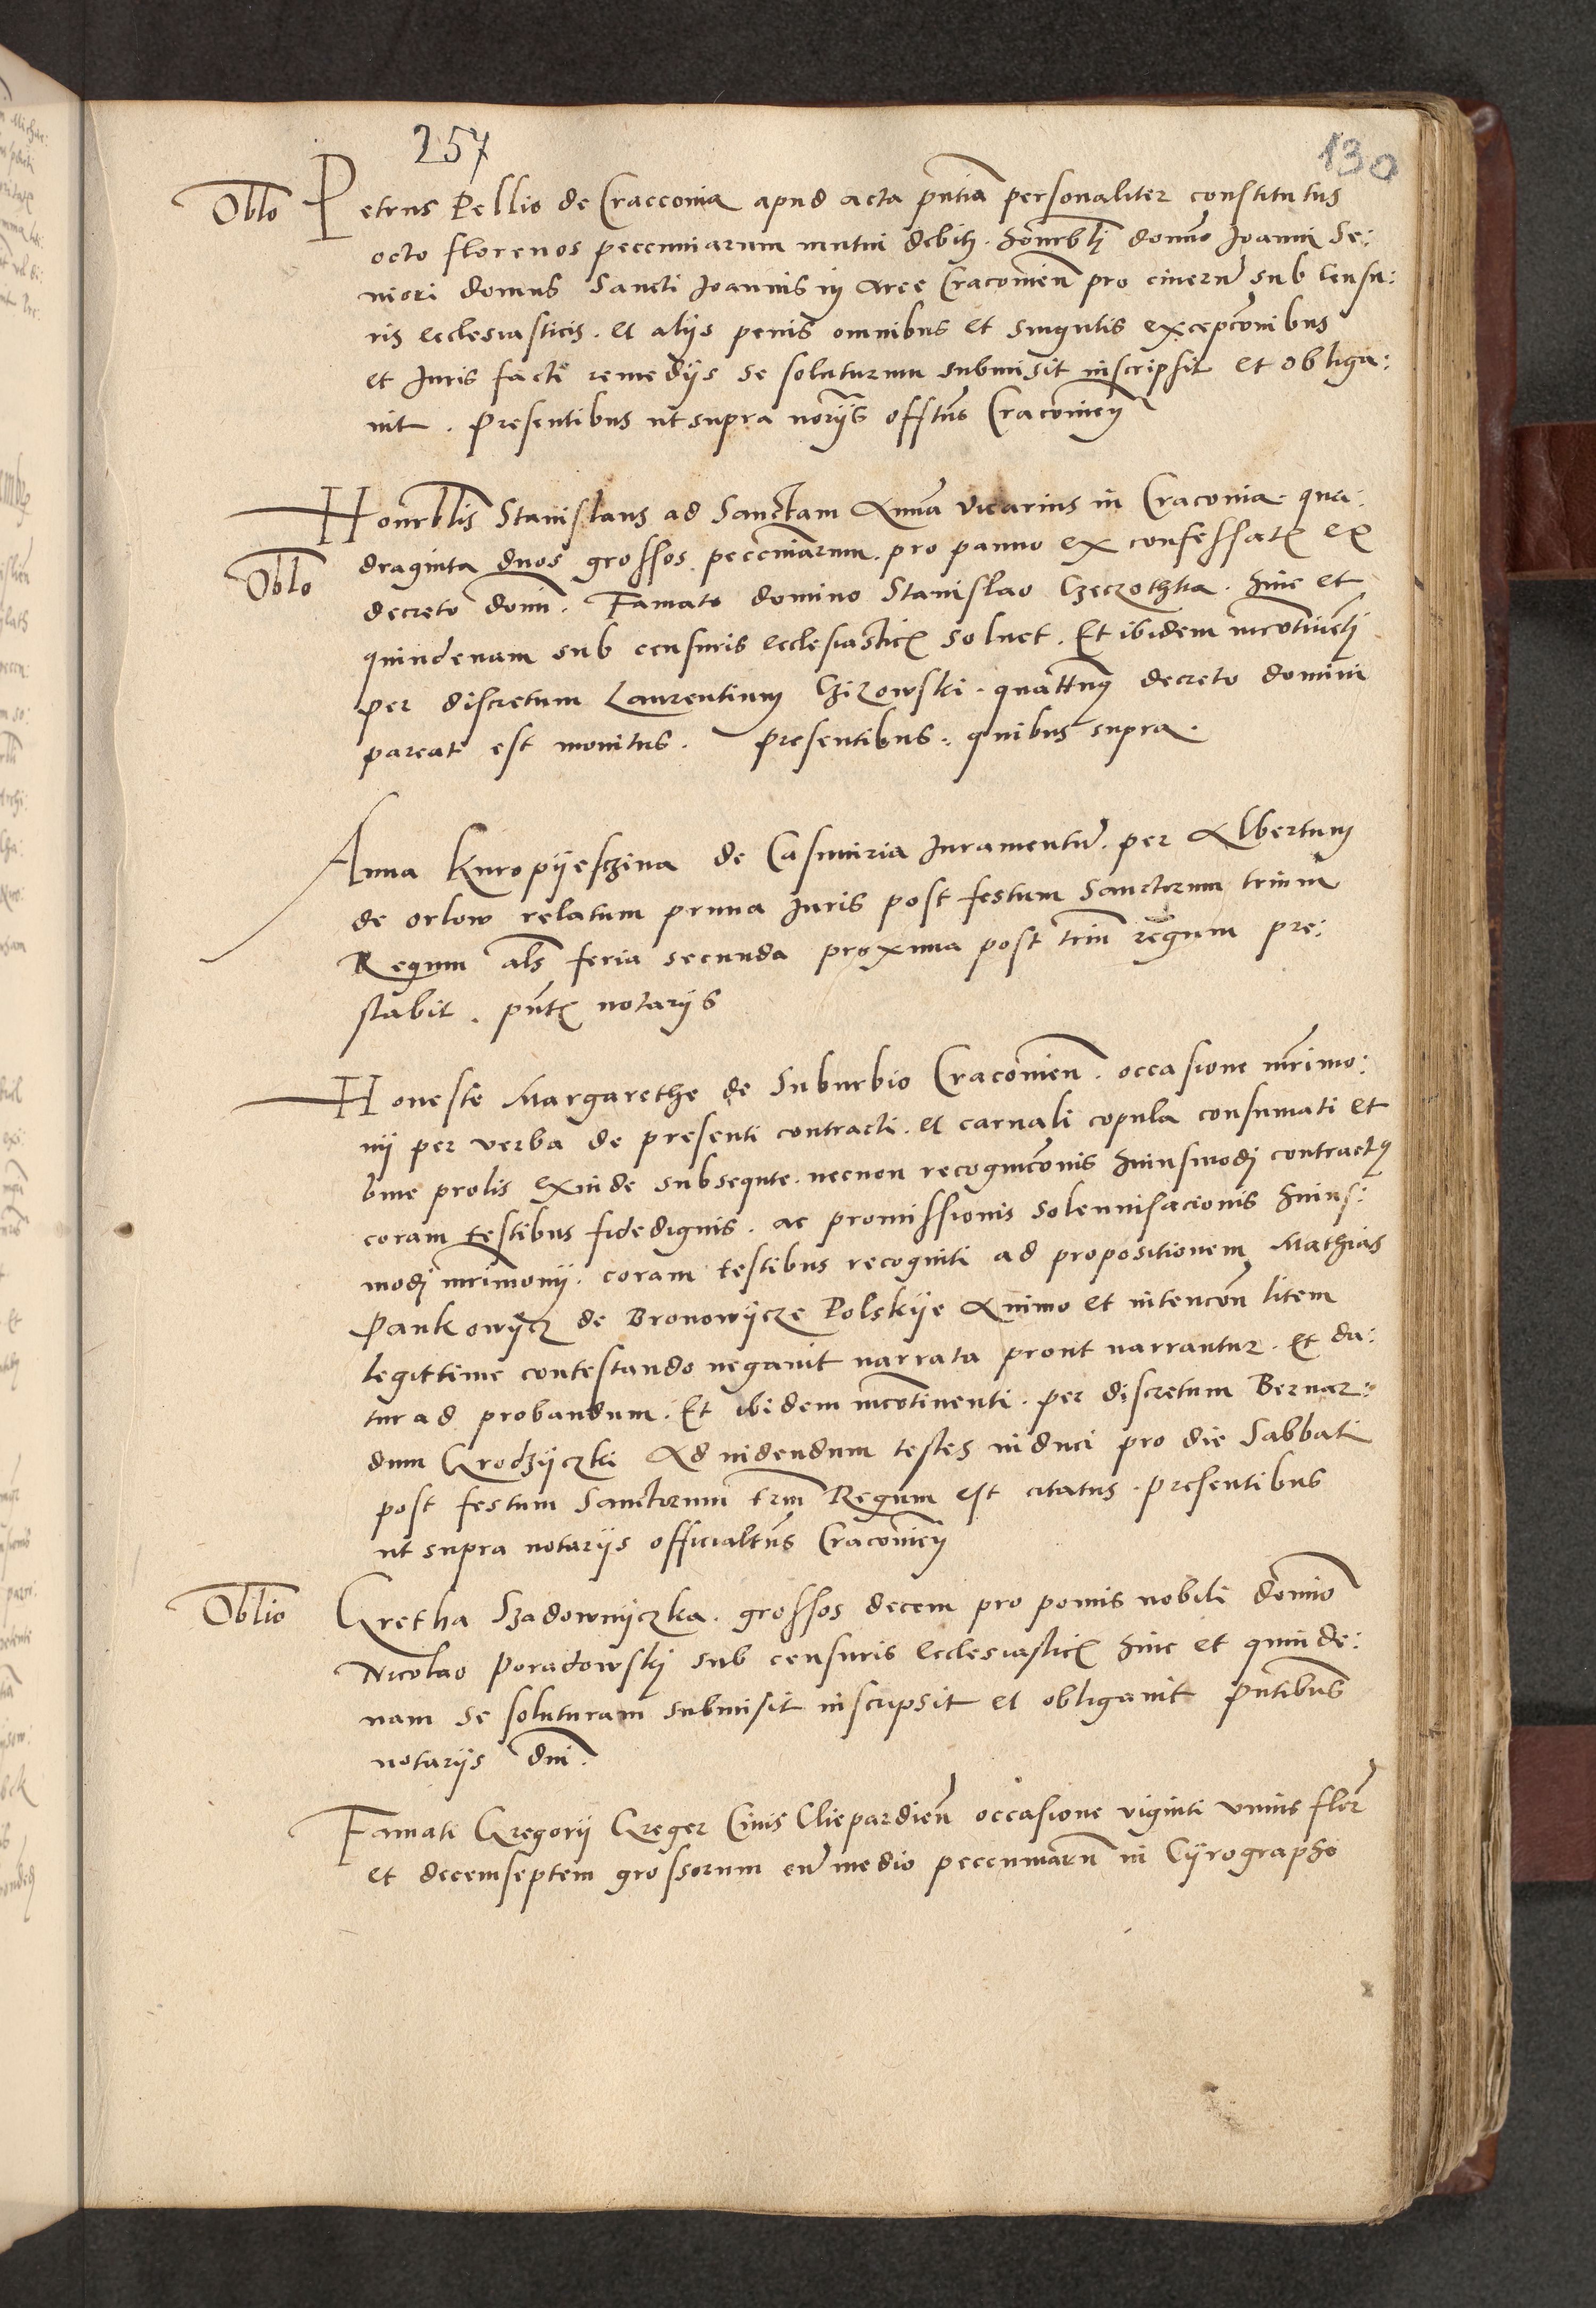 257
130
Oblo Petrus Pellio de Cracconia apud acta pntia personaliter constitutus
octo florenos pecuniarum mutui debiti honorbli domino Joanni Se:
niori domus Sancti Joannis in Arce Cracovien pro cineru sub Censu:
ris ecclesiasticis. et alijs penis omnibus et singulis excepconibus
et Juris facti remedijs se soluturum submisit inscripsit et obliga:
uit. Presentibus ut supra norijs offtus Cracovien
Honrblis Stanislaus ad Sanctam Annam vicarius in Cracovia. qua:
Oblo draginta duos grossos pecuniarum. pro panno ex confessatis ex
decreto domini. Famato domino Stanislao Czeczothka. hinc et
quindenam sub censuris ecclesiasticis soluet. Et ibidem incotinenti
per discretum Laurentium Czizowski. quattnus decreto domini
pareat est monitus. Presentibus. quibus supra.
Anna Kuropijeschina de Casimiria Juramentu. per Albertum
de Orlow relatum prima Juris post festum Sanctorum trium
Regum als feria secunda proxima post triu regum pre:
stabit. pntis notarijs
Honeste Margarethe de Suburbio Cracovien. occasione mrimo:
nij per verba de presenti contracti. et carnali copula consumati et
bine prolis exinde subsequte. necnon recogniconis huiusmodi contractus
coram testibus fidedignis. ac promissionis solennisacionis huius:
modi mrimonij. coram testibus recogniti ad propositionem Mathias
Pankowijcz de Bronowijcze Polskije Animo et intencon litem
legittime contestando negauit narrata prout narrantur. Et da:
tur ad probandum. Et ibidem incotinenti. per discretum Bernar:
dum Grodzijczki Ad uidendum testes induci pro die Sabbati
post festum Sanctorum triu Regum est citatus. Presentibus
ut supra notarijs officialtus Cracovien
Oblio Gretha Szadownijczka. grossos decem pro pomis nobili domino
Nicolao Poradowski sub censuris ecclesiasticis hinc et quinde:
nam se soluturam submisit inscripsit et obligauit pntibus
notarijs dni.
Famati Gregorij Greger Ciuis Cliepardien occasione viginti vnius flor
et decemseptem grossorum cu medio pecuniaru in Cijrographo